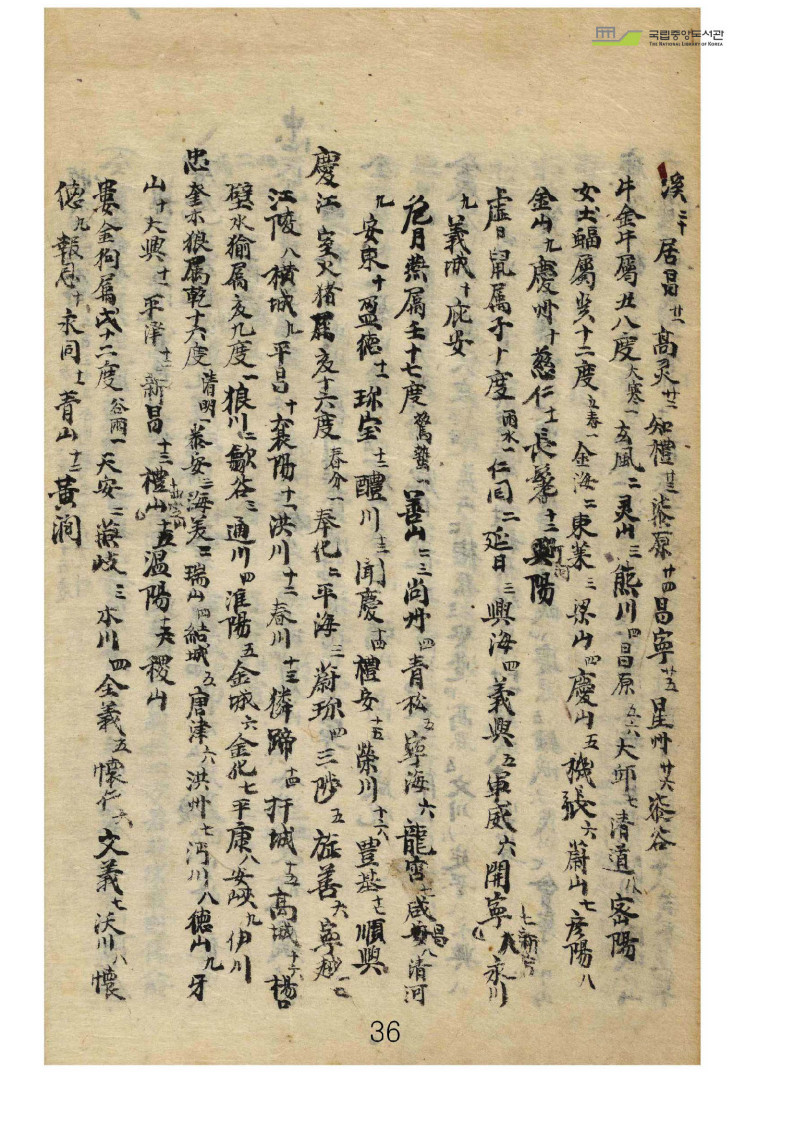 국립중앙도서관
THE NATIONAL LIBRARY OF KOREA
溪 二十 居昌 廿一 高灵 廿二 知禮 廿三 柒原 廿四 昌寧 廿五 星州 廿六 柒谷
牛金牛屬丑八度 大寒一 玄風 二 灵山 三 熊川 四 昌原 五六 大邱 七 清道 八 密陽
女土蝠屬癸十二度 立春一 金海 二 東萊 三 梁山 四 慶山 五 機張 六 蔚山 七 彦陽 八
金山 九 慶州 十 慈仁 十一 長鬐 十二 興陽
虛日鼠属子十度 雨水一 仁同 二 延日 三 興海 四 義興 五 軍威 六 開寧 七 新寧 八 永川
九 義城 十 庇安
危月燕属壬十七度 驚蟄一 善山 二三 尚州 四 青松 五 寧海 六 龍宮 七 咸昌 八 清河
九 安東 十 盈德 十一 珎宝 十二 醴川 十三 聞慶 十四 禮安 十五 榮川 十六 豊基 十七 順興
慶江 室火猪属亥十六度 春分一 奉化 二 平海 三 蔚珎 四 三陟 五 旌善 六 寧越 七
江陵 八 橫城 九 平昌 十 襄陽 十一 洪川 十二 春川 十三 獜蹄 十四 扞城 十五 高城 十六 楊口
壁水㺄属亥九度 一 狼川 二 歙谷 三 通川 四 淮陽 五 金城 六 金化 七 平康 八 安峽 九 伊川
忠 奎木狼属乾十六度 清明一 泰安 二 海美 三 瑞山 四 結城 五 唐津 六 洪州 七 沔川 八 德山 九 牙
山 十 大興 十一 平澤 十二 新昌 十三 禮山 十四 定山 十五 温陽 十六 稷山
婁金狗属戌十二度 谷雨一 天安 二 燕岐 三 木川 四 全義 五 懷仁 六 文義 七 沃川 八 懷
德 九 報恩 十 永同 十一 青山 十二 黃澗
36